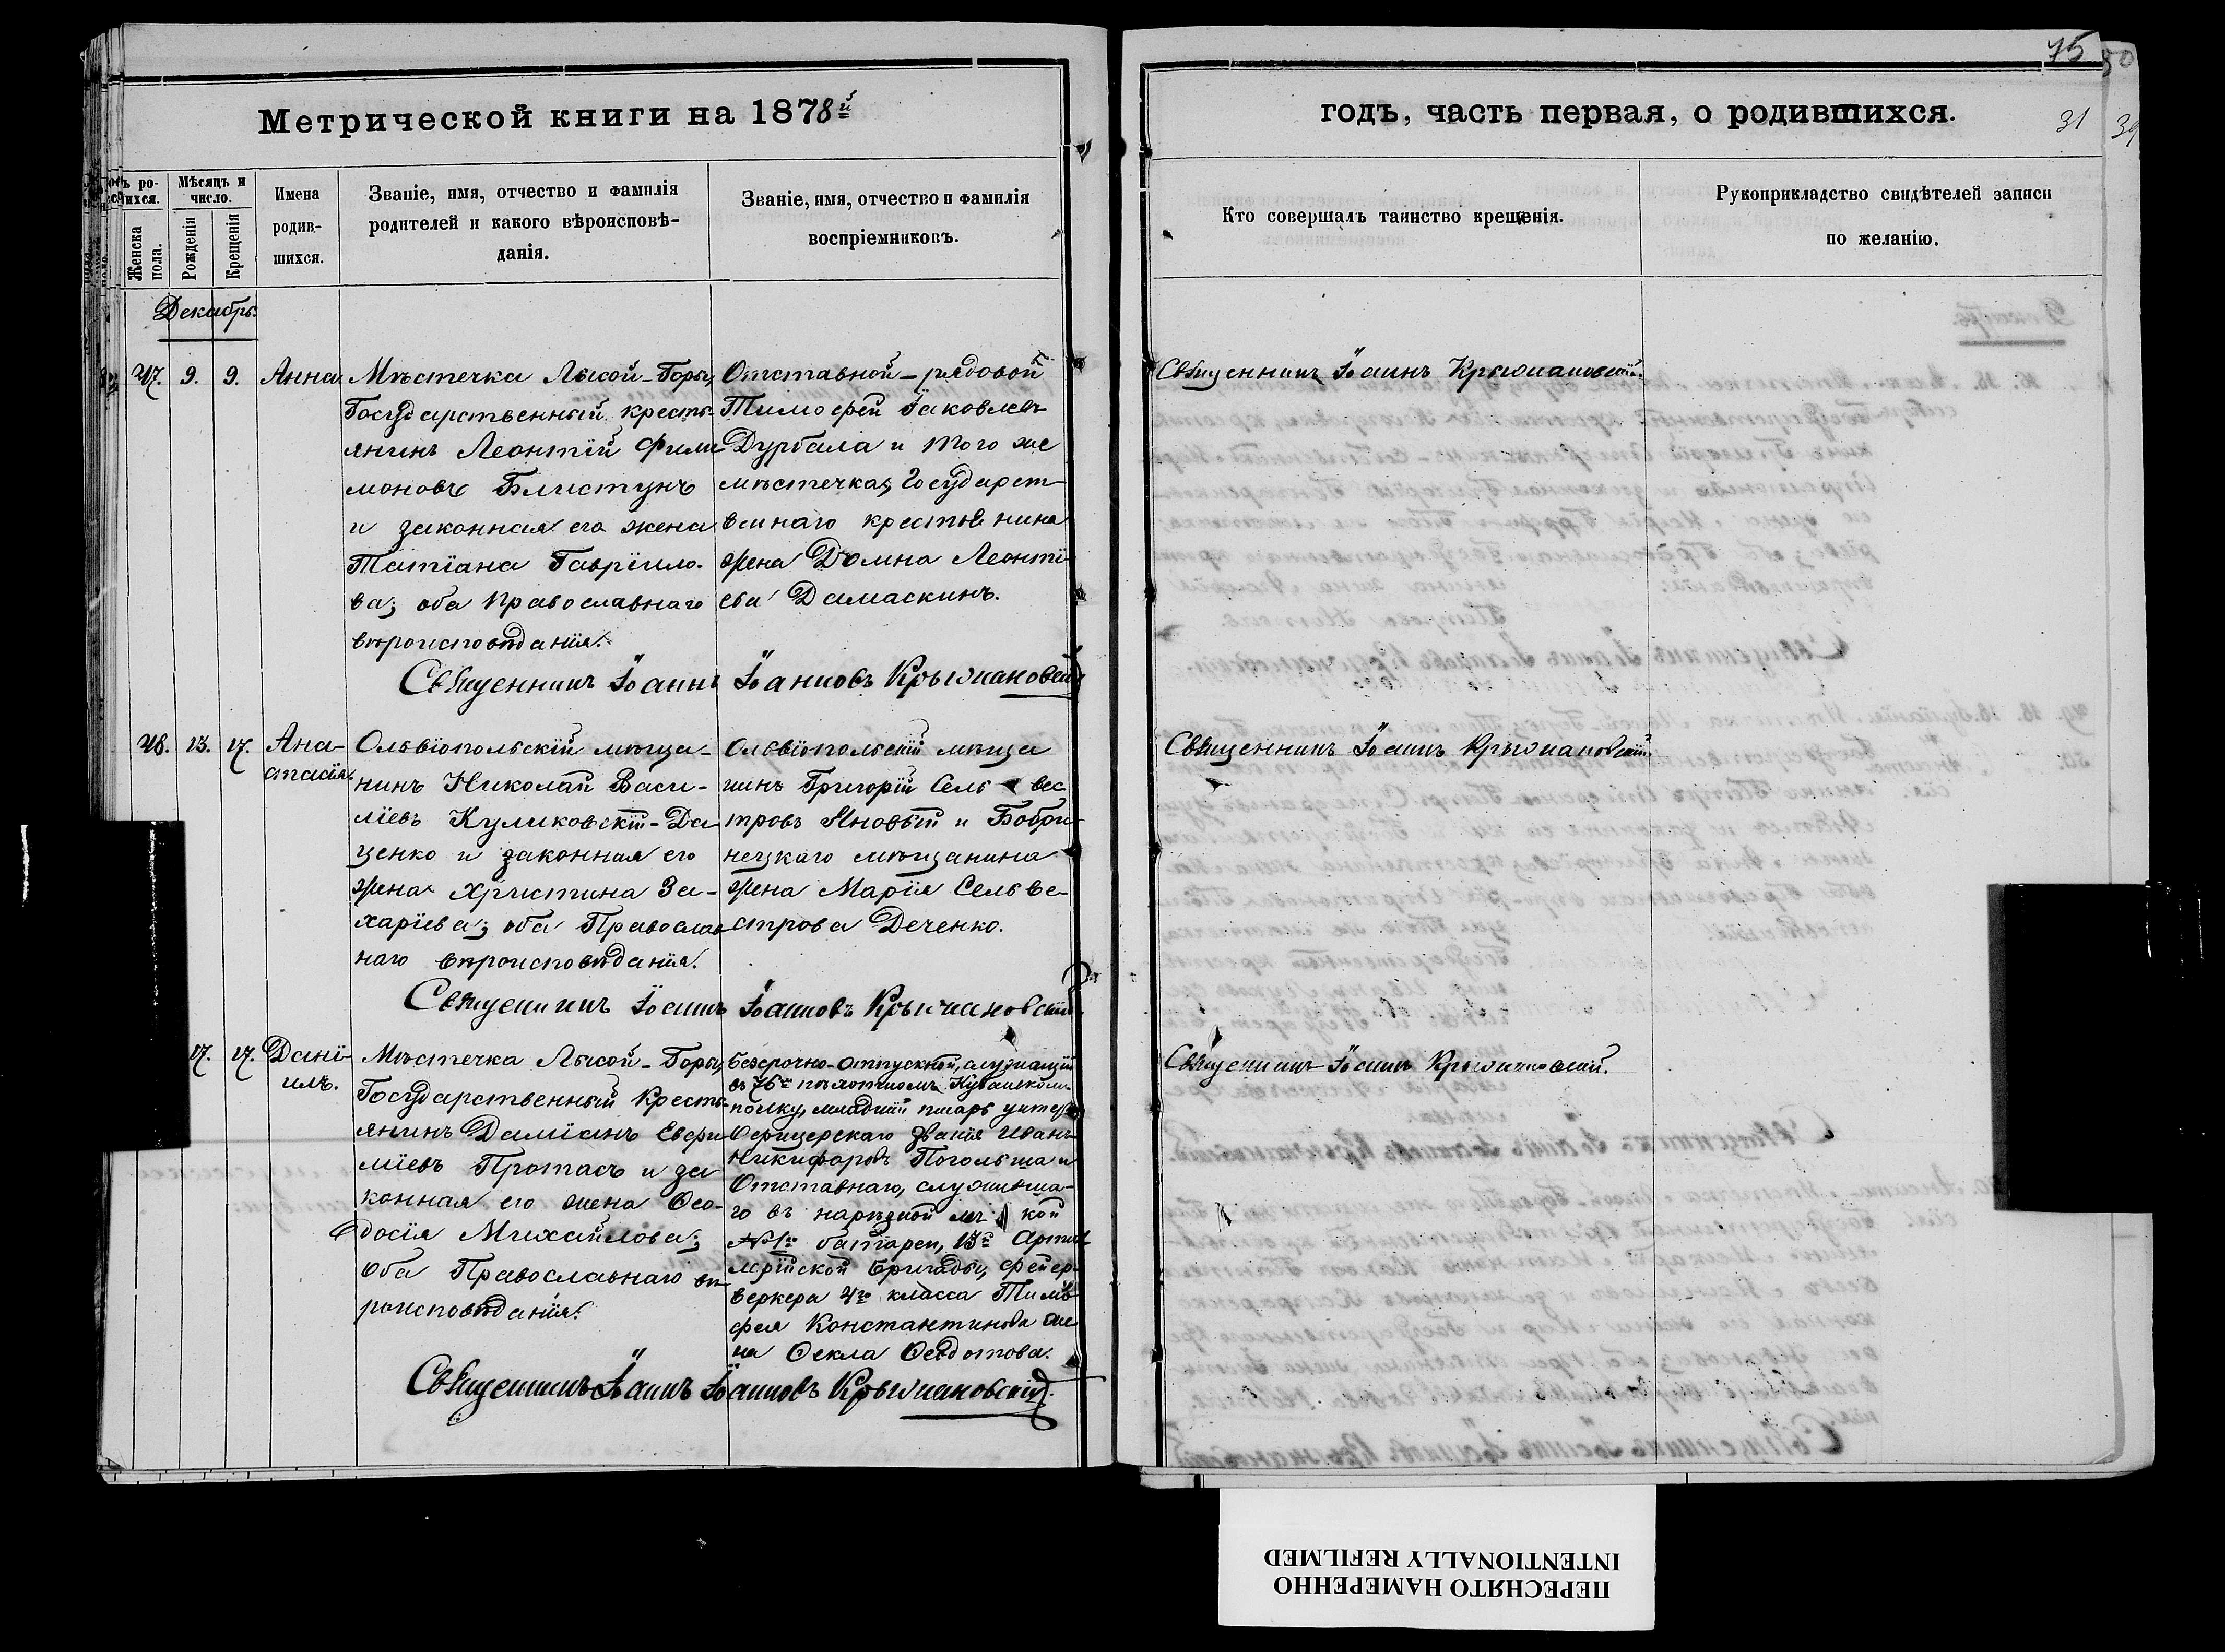 75
50
Метрической книги на 1878й
годъ, часть первая, о родившихся.
31
39
ъ ро-
ихся.
Женска
пола.
Мѣсяцъ и
число.
Рожденія
Крещенія
Имена
родив-
шихся.
Званіе, имя, отчество и фамилія
родителей и какого вѣроисповѣ-
данія.
Званіе, имя, отчество и фамилія
воспріемниковъ.
Кто совершалъ таинство крещенія.
Рукоприкладство свидѣтелей записи
по желанію.
Декабрь.
27. 9. 9. Анна
Мѣстечка Лысой-Горы,
Государственный кресть-
янинъ Леонтій Фили
моновъ Блистунъ
и законная его жена
Татіана Гавріило-
ва; оба Православнаго
вѣроисповѣданія.
Отставной-рядовой
Тимофей Іаковлевъ
Дурбала и того же
мѣстечка, Государст-
веннаго крестьянина
жена Домна Леонті-
ева Дамаскинъ.
Священникъ Іоаннъ Крыжановскій.
Священникъ Іоаннъ Іоанновъ Крыжановскій
28. 13. 17. Ана-
стасія.
Ольвіопольскій мѣща-
нинъ Николай Васи-
ліевъ Куликовскій-Да
ценко и законная его
жена Христина За-
харіева; оба Православ
наго вѣроисповѣданія.
Ольвіопольскій мѣща
нинъ Григорій Сельвес
тровъ Яновый и Бобри-
нецкаго мѣщанина
жена Марія Сельве-
строва Деченко.
Священникъ Іоаннъ Крыжановскій.
Священникъ Іоаннъ Іоанновъ Крыжановскій.
17. 17. Дані-
илъ.
Мѣстечка Лысой-Горы,
Государственный Кресть-
янинъ Даміанъ Евфи
міевъ Протасъ и за
конная его жена Ѳео-
досія Михайлова;
оба Православнаго вѣ-
роисповѣданія.
Безсрочно-отпускной, служащій
въ 76мъ пѣхотномъ Кубанскомъ
полку, младшій писарь унтеръ
Офицерскаго званія Иванъ
Никифоровъ Погольша и
Отставнаго, служивша-
го въ нарѣзной
№ 1й батареи, 13й Артил
лерійской Бригады, фейер-
веркера 4го класса Тимо
фея Константинова же
на Ѳекла Ѳеодотова.
Священникъ Іоаннъ Крыжановскій.
Священникъ Іоаннъ Іоанновъ Крыжановскій.
ПЕРЕСНЯТО НАМЕРЕННО
INTENTIONALLY REFILMED